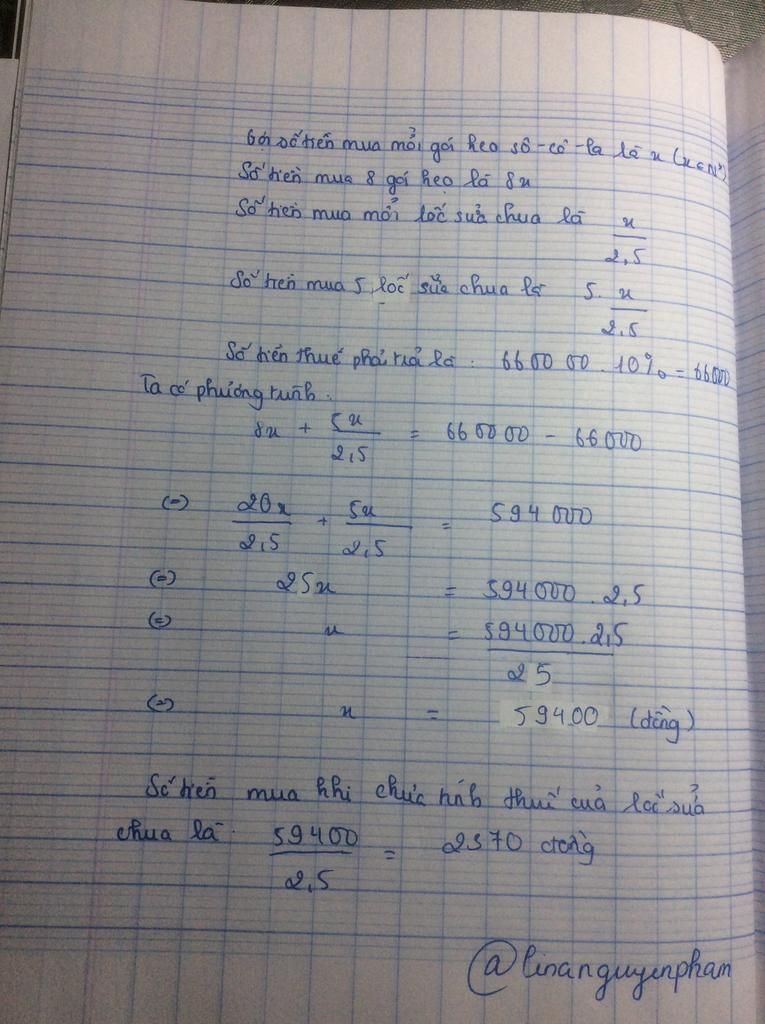 Gọi số tiền mua mỗi gói kẹo sô-cô-la là x (x ∈ N*)
Số tiền mua 8 gói kẹo là 8x
Số tiền mua mỗi lốc sữa chua là x/2,5
Số tiền mua 5 lốc sữa chua là 5. x/2,5
Số tiền thuế phải trả là : 660000 . 10% = 66000
Ta có phương trình :
8x + 5x/2,5 = 660000 - 66000
(=) 20x/2,5 + 5x/2,5 = 594000
(=) 25x = 594000 . 2,5
(=) x = 594000 . 2,5/25
(=) x = 59400 (đồng)
Số tiền mua khi chưa tính thuế của lốc sữa
chua là : 59400/2,5 = 2370 đồng
@linanguyenpham